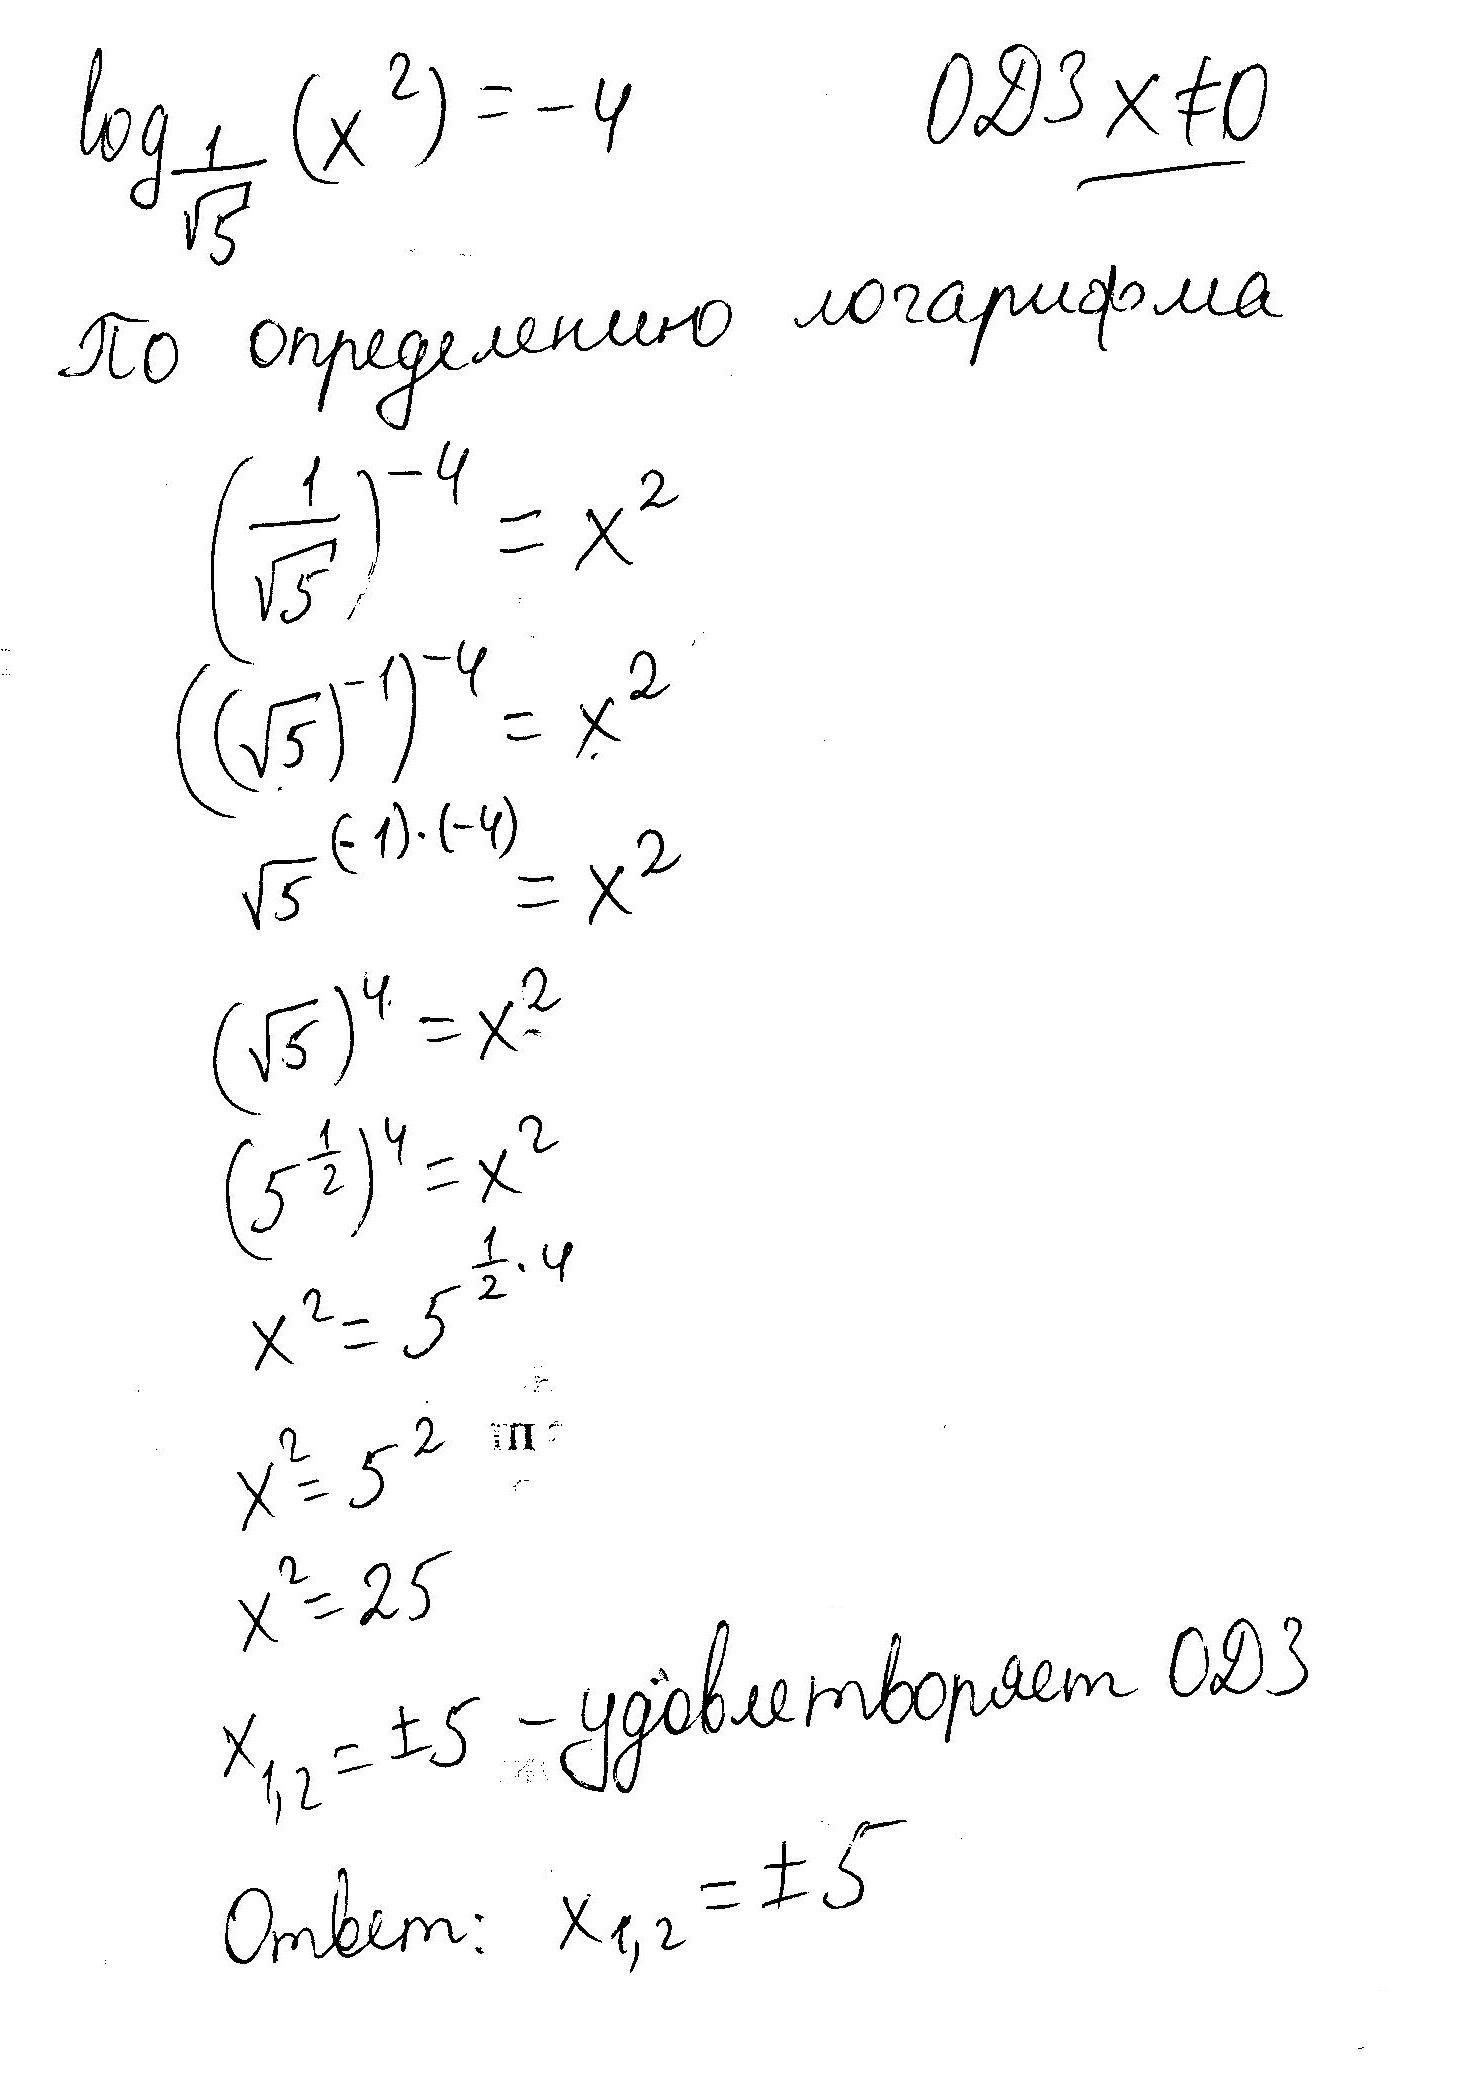 log_{1/√5} (x²) = -4 ОДЗ x≠0
По определению логарифма
(1/√5)⁻⁴ = x²
((√5)⁻¹)⁻⁴ = x²
√5^{(-1)·(-4)} = x²
(√5)⁴ = x²
(5^{1/2})⁴ = x²
x² = 5^{1/2·4}
x² = 5²
x² = 25
x_{1,2} = ±5 - удовлетворяет ОДЗ
Ответ: x_{1,2} = ±5